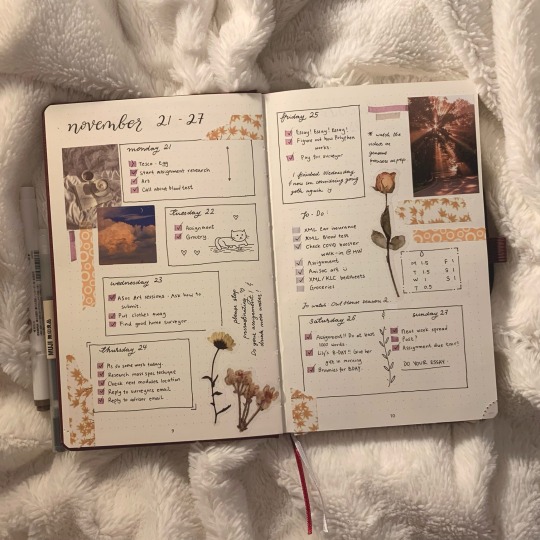 november 21 - 27
monday 21
Tesco - Egg
Start assignment research
Art
Call about blood test
Tuesday 22
Assignment
Grocery
wednesday 23
ASoc Art sessions - Ask how to
submit.
Put clothes away
Find good home surveyor
please stop
procrastinating
Do your assignment!
drink more water!
thursday 24
Research
Check new modules location
Reply to surveyors email
Reply to advisor email
9
friday 25
Essay! Essay! Essay!
Figure out how Polythen
works.
Pay for surveyor
I finished Wednesday
* watch the
To-Do:
XML car insurance
XML Blood test
Check COVID booster
walk-in @ MW
Assignment
AmSoc art
XML/KLC bedsheets
Groceries
M 15 F 1
T 15 S 1
W 1 S 1
T 0.5
To watch: Owl House season 2
Saturday 26
Assignment!! Do at least
500 words.
Lily's B-DAY! Give her
gift in morning
Brownies for BDAY.
Sunday 27
Next week spread
Pack?
Assignment due Tues!
DO YOUR ESSAY.
10